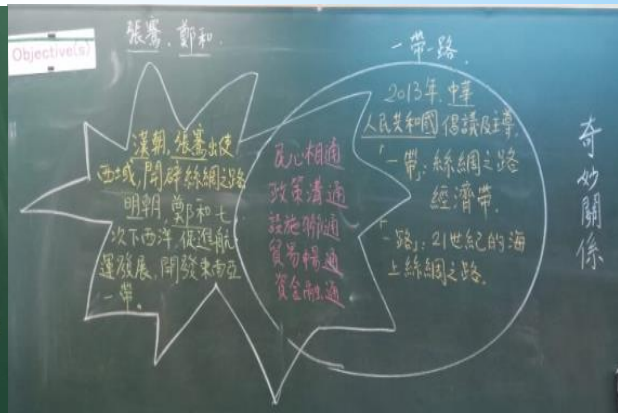 Objective(s)
張騫、鄭和.
漢朝,張騫出使
西域,開辟絲綢之路
明朝,鄭和七
次下西洋,促進航
運發展,開發東南亞
一帶。
民心相通
政策溝通
設施聯通
貿易暢通
資金融通
一帶一路.
2013年,中華
人民共和國倡議及主導,
「一帶」:絲綢之路
經濟帶.
「一路」:21世紀的海
上絲綢之路.
奇妙關係